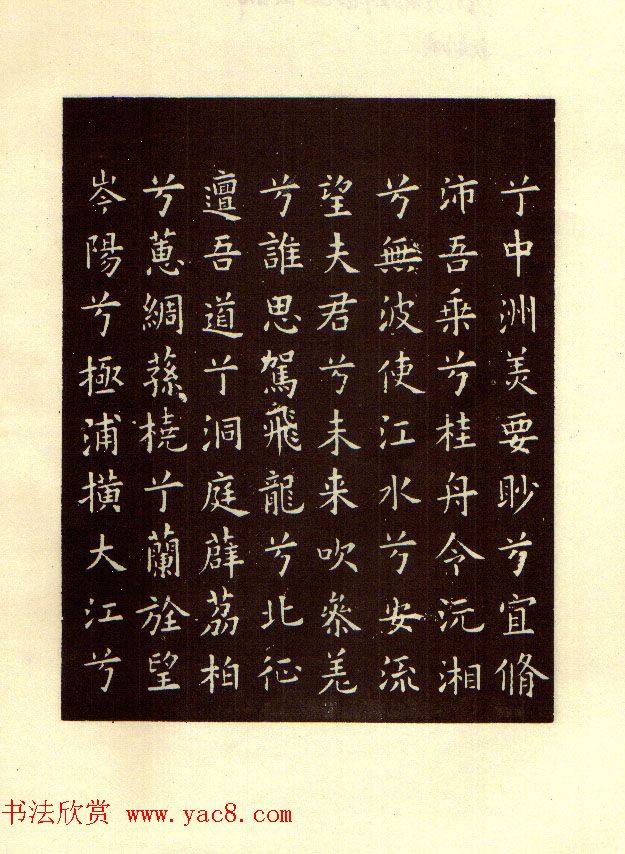 兮中洲美要眇兮宜脩
沛吾乗兮桂舟令沅湘
兮無波使江水兮安流
望夫君兮未来吹叅差
兮誰思駕飛龍兮北征
邅吾道兮洞庭薜荔柏
兮蕙綢蓀橈兮蘭旌望
岑陽兮極浦横大江兮
书法欣赏 www.yac8.com